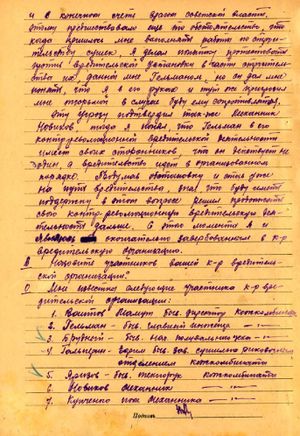 и в конечном счете врагом советской власти,
этому предшествовало еще то обстоятельство, что
когда пришлось мне выполнять работы по строи-
тельству сушек. Я делал попытку протестовать
против вредительской установки в части строитель-
ства но данный мне Гельманом, но он дал мне
понять, что я в его руках и тут же пригрозил
мне тюрьмой в случае буду ему сопротивляться.
Эту угрозу подтвердил так-же механик
Новиков, тогда я понял, что Гельман в его
контр-революционной вредительской деятельности
имеет своих сторонников, что он действует не
один, а вредительство идет в организованном
порядке. Обдумав обстановку и став уже
на путь вредительства, зная, что буду иметь
поддержку в этом вопросе решил продолжать
свою контр-революционную вредительскую дея-
тельность дальше. С этого момента я и
являюсь окончательно завербованным в к-р
вредительскую организацию.
В Назовите участников вашей к-р вредитель-
ской организации?
О Мне известны следующие участники к-р вре-
дительской организации:
1. быв. директор кожкомбината
2. Гельман - быв. главный инженер — " —
3. быв. нач. цеха — " —
4. Гальперин - быв. зав. сушильно
отделения кожкомбината
5. быв. технорук кожкомбината
6. Новиков механик — " —
7. Купченко пом. механика — " —
Подпись